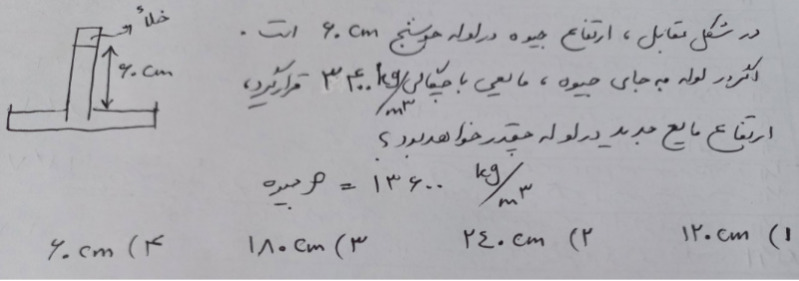 خلأ
۶۰ cm
در شکل مقابل، ارتفاع جیوه در لوله هواسنج ۶۰ cm است.
اگر در لوله به جای جیوه، مایعی با چگالی ۳۴۰۰ kg/m³ قرار گیرد،
ارتفاع مایع جدید در لوله چقدر خواهد بود؟
ρ جیوه = ۱۳۶۰۰ kg/m³
۱) ۱۲۰ cm ۲) ۲۴۰ cm ۳) ۱۸۰ cm ۴) ۶۰ cm